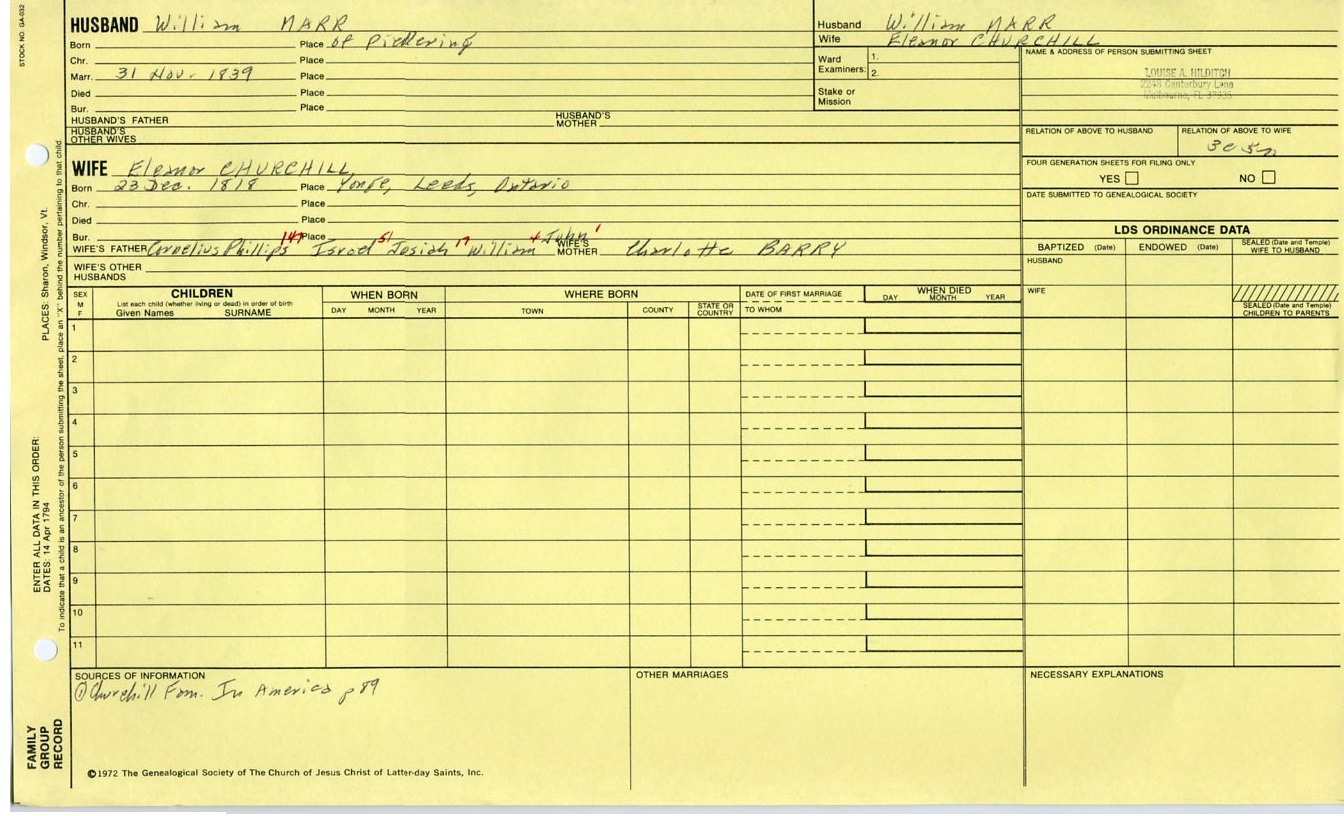 STOCK NO. GA-032
HUSBAND William MARR
Born Place of Pickering
Chr. Place
Marr. 31 Nov. 1839 Place
Died Place
Bur. Place
HUSBAND'S FATHER HUSBAND'S MOTHER
HUSBAND'S OTHER WIVES
Husband William MARR
Wife Eleanor CHURCHILL
Ward Examiners: 1.
2.
Stake or Mission
NAME & ADDRESS OF PERSON SUBMITTING SHEET
LOUISE A. HILDITCH
2243 Canterbury Lane
Melbourne, FL 32935
RELATION OF ABOVE TO HUSBAND RELATION OF ABOVE TO WIFE
3C 5
FOUR GENERATION SHEETS FOR FILING ONLY
YES NO
DATE SUBMITTED TO GENEALOGICAL SOCIETY
WIFE Eleanor CHURCHILL
Born 23 Dec. 1818 Place Yonge, Leeds, Ontario
Chr. Place
Died Place
Bur. Place
WIFE'S FATHER Cornelius Phillips 147 Israel 51 Josiah 17 William 4 John 1 WIFE'S MOTHER Charlotte BARRY
WIFE'S OTHER HUSBANDS
LDS ORDINANCE DATA
BAPTIZED (Date) ENDOWED (Date) SEALED (Date and Temple) WIFE TO HUSBAND
HUSBAND
WIFE
SEALED (Date and Temple) CHILDREN TO PARENTS
SEX M F
CHILDREN
List each child (whether living or dead) in order of birth
Given Names SURNAME
WHEN BORN
DAY MONTH YEAR
WHERE BORN
TOWN COUNTY STATE OR COUNTRY
DATE OF FIRST MARRIAGE
TO WHOM
WHEN DIED
DAY MONTH YEAR
1
2
3
4
5
6
7
8
9
10
11
SOURCES OF INFORMATION
① Churchill Fam. In America p 89
OTHER MARRIAGES
NECESSARY EXPLANATIONS
©1972 The Genealogical Society of The Church of Jesus Christ of Latter-day Saints, Inc.
FAMILY GROUP RECORD
ENTER ALL DATA IN THIS ORDER:
DATES: 14 Apr 1794
PLACES: Sharon, Windsor, Vt.
To indicate that a child is an ancestor of the person submitting the sheet, place an "X" behind the number pertaining to that child.